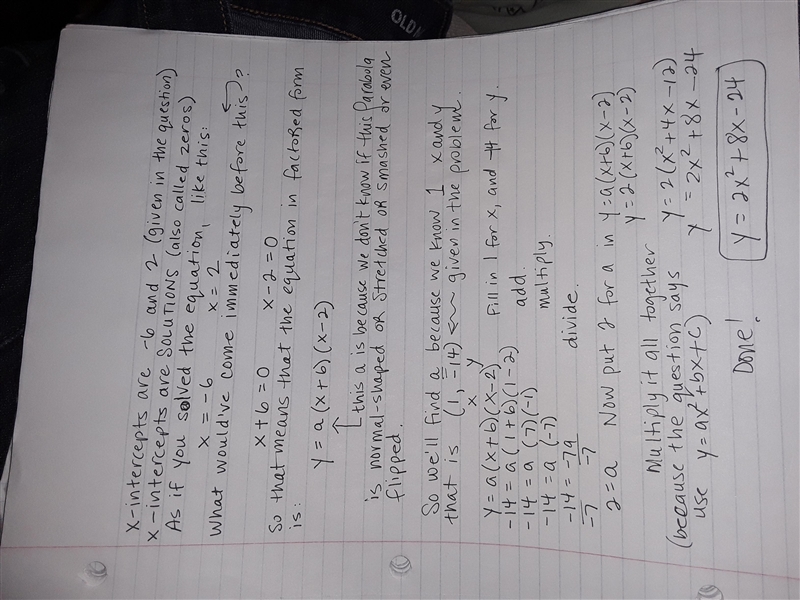 x-intercepts are -6 and 2 (given in the question)
x-intercepts are SOLUTIONS (also called zeros)
As if you solved the equation, like this:
x = -6 x = 2
What would've come immediately before this?
x+6=0 x-2=0
So that means that the equation in factored form
is:
y = a(x+6)(x-2)
this a is because we don't know if this parabola
is normal-shaped OR stretched OR smashed or even
flipped.
So we'll find a because we know 1 x and y
that is (1, -14) given in the problem.
x y
y = a(x+6)(x-2) Fill in 1 for x, and -14 for y.
-14 = a(1+6)(1-2) add.
-14 = a(7)(-1) multiply.
-14 = a(-7)
-14 = -7a divide.
-7 -7
2 = a Now put 2 for a in y=a(x+6)(x-2)
y=2(x+6)(x-2)
Multiply it all together
(because the question says y=2(x²+4x-12)
use y=ax²+bx+c) y= 2x²+8x-24
Done! y=2x²+8x-24
OLD N